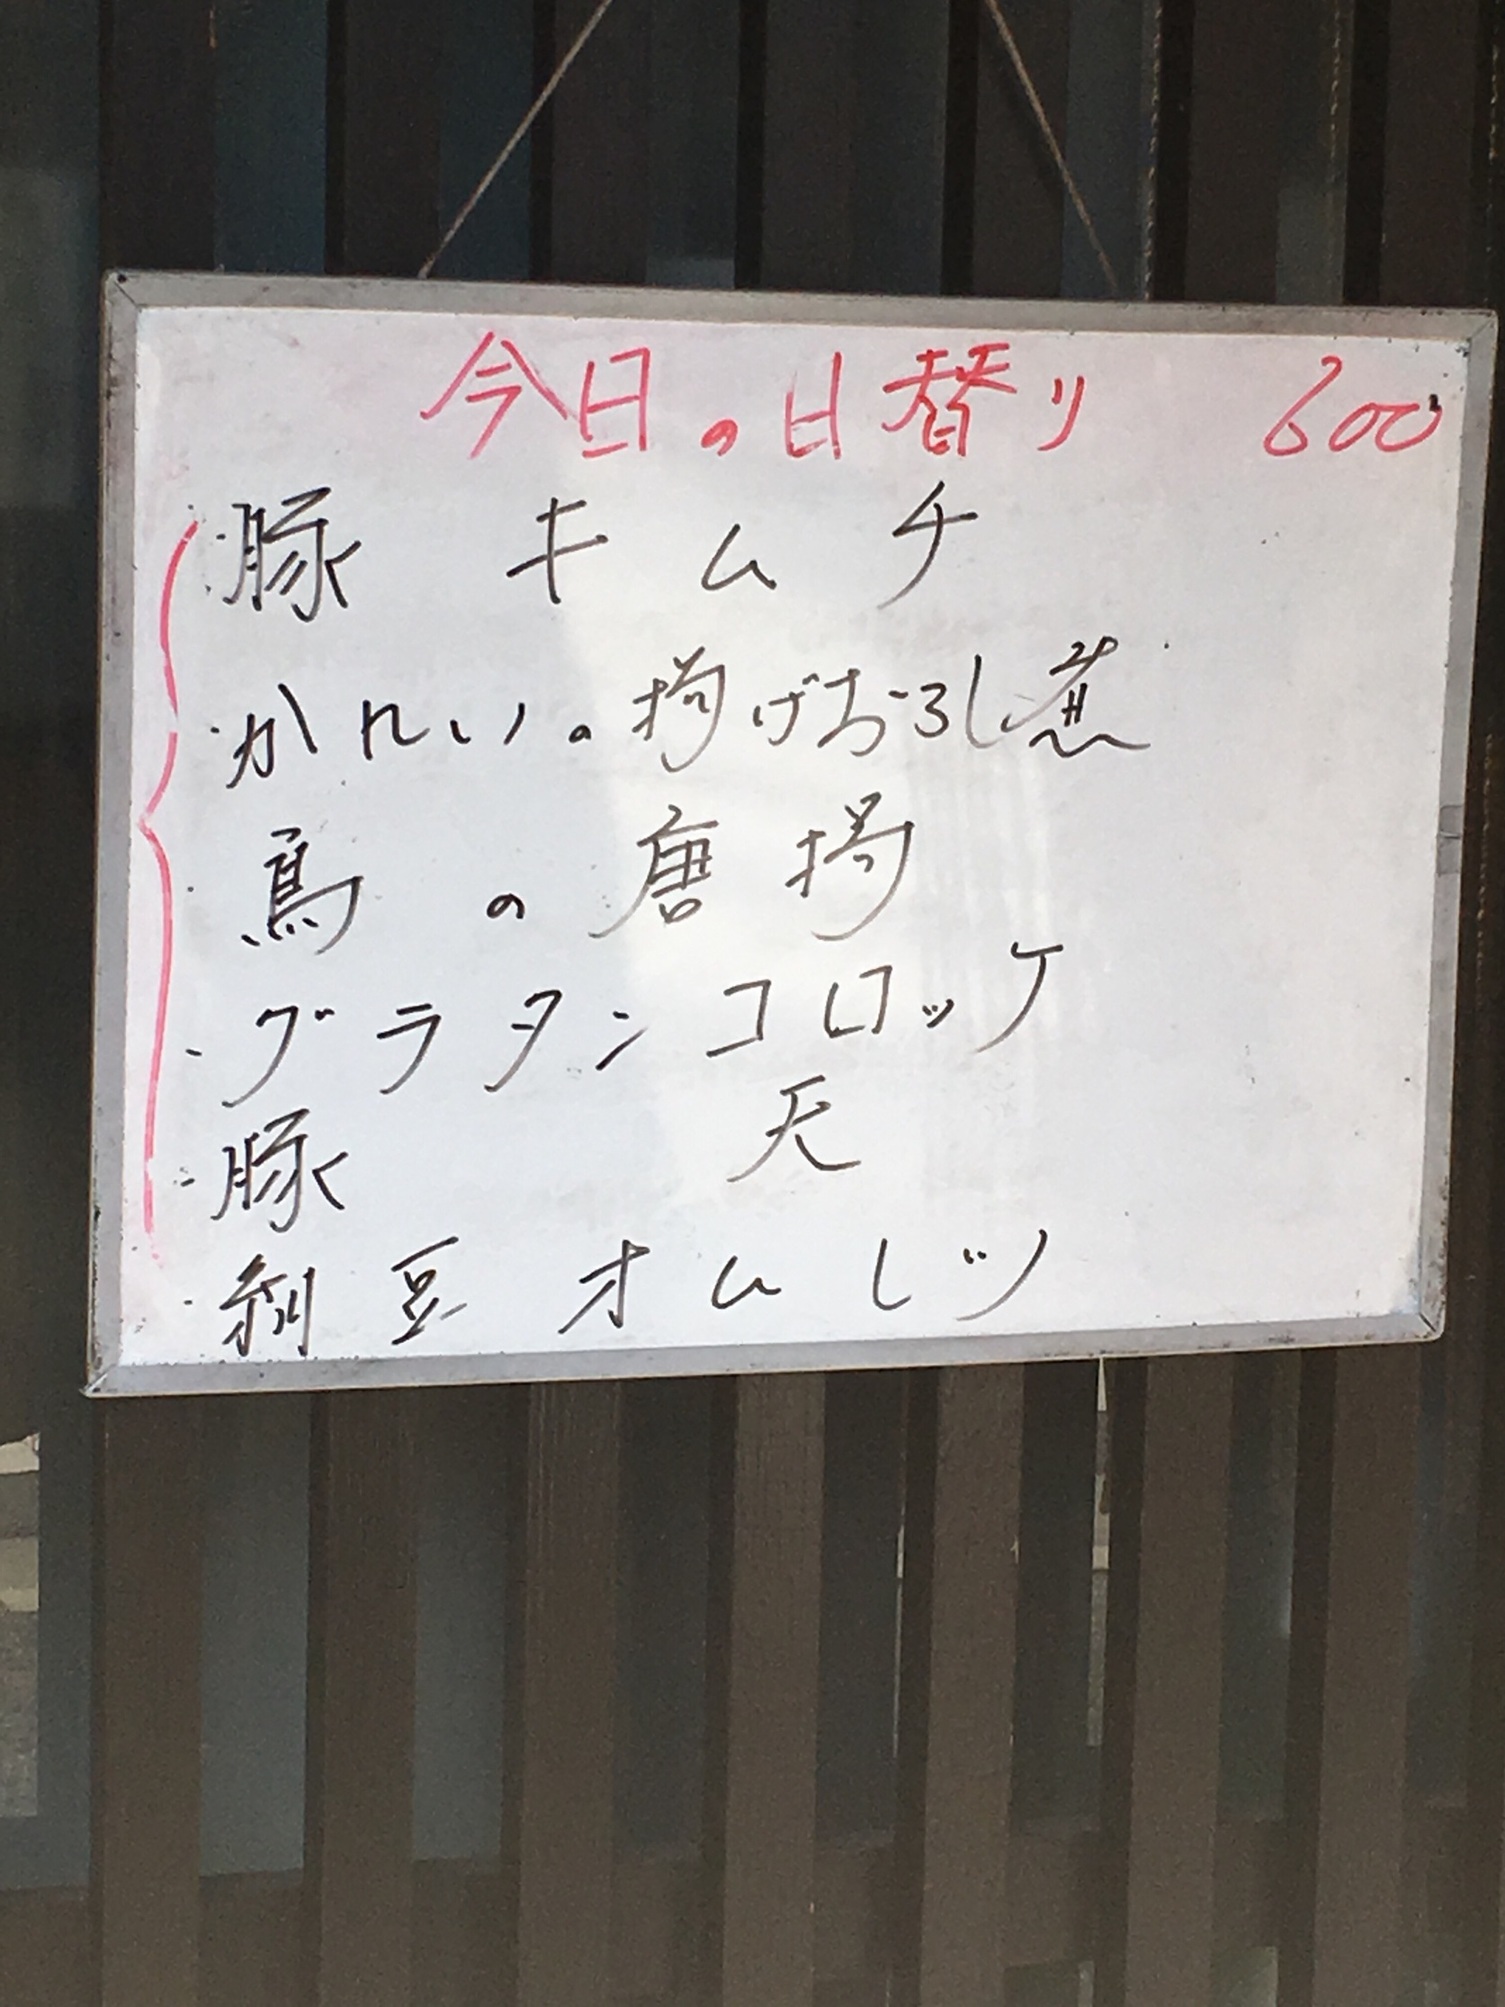 今日の日替り 600
・豚キムチ
・かれいの揚げおろし煮
・鳥の唐揚
・グラタンコロッケ
・豚天
・納豆オムレツ